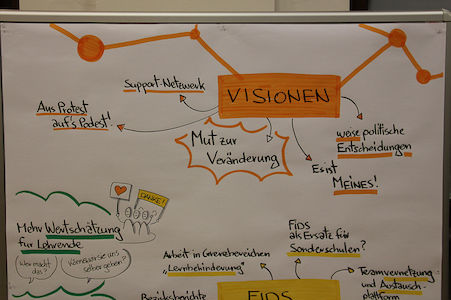 Support-Netzwerk
VISIONEN
Aus Protest
auf's Podest!
Mut zur
Veränderung
weise politische
Entscheidungen
Es ist
MEINES!
DANKE!
Mehr Wertschätzung
für Lehrende
Wer macht
das?
Können wir sie uns
selber geben?
FiDS
als Ersatz für
Sonderschulen?
Arbeit in Grenzbereichen
"Lernbehinderung"
Teamvernetzung
und Austausch-
plattform
Bezirksberichte
FIDS